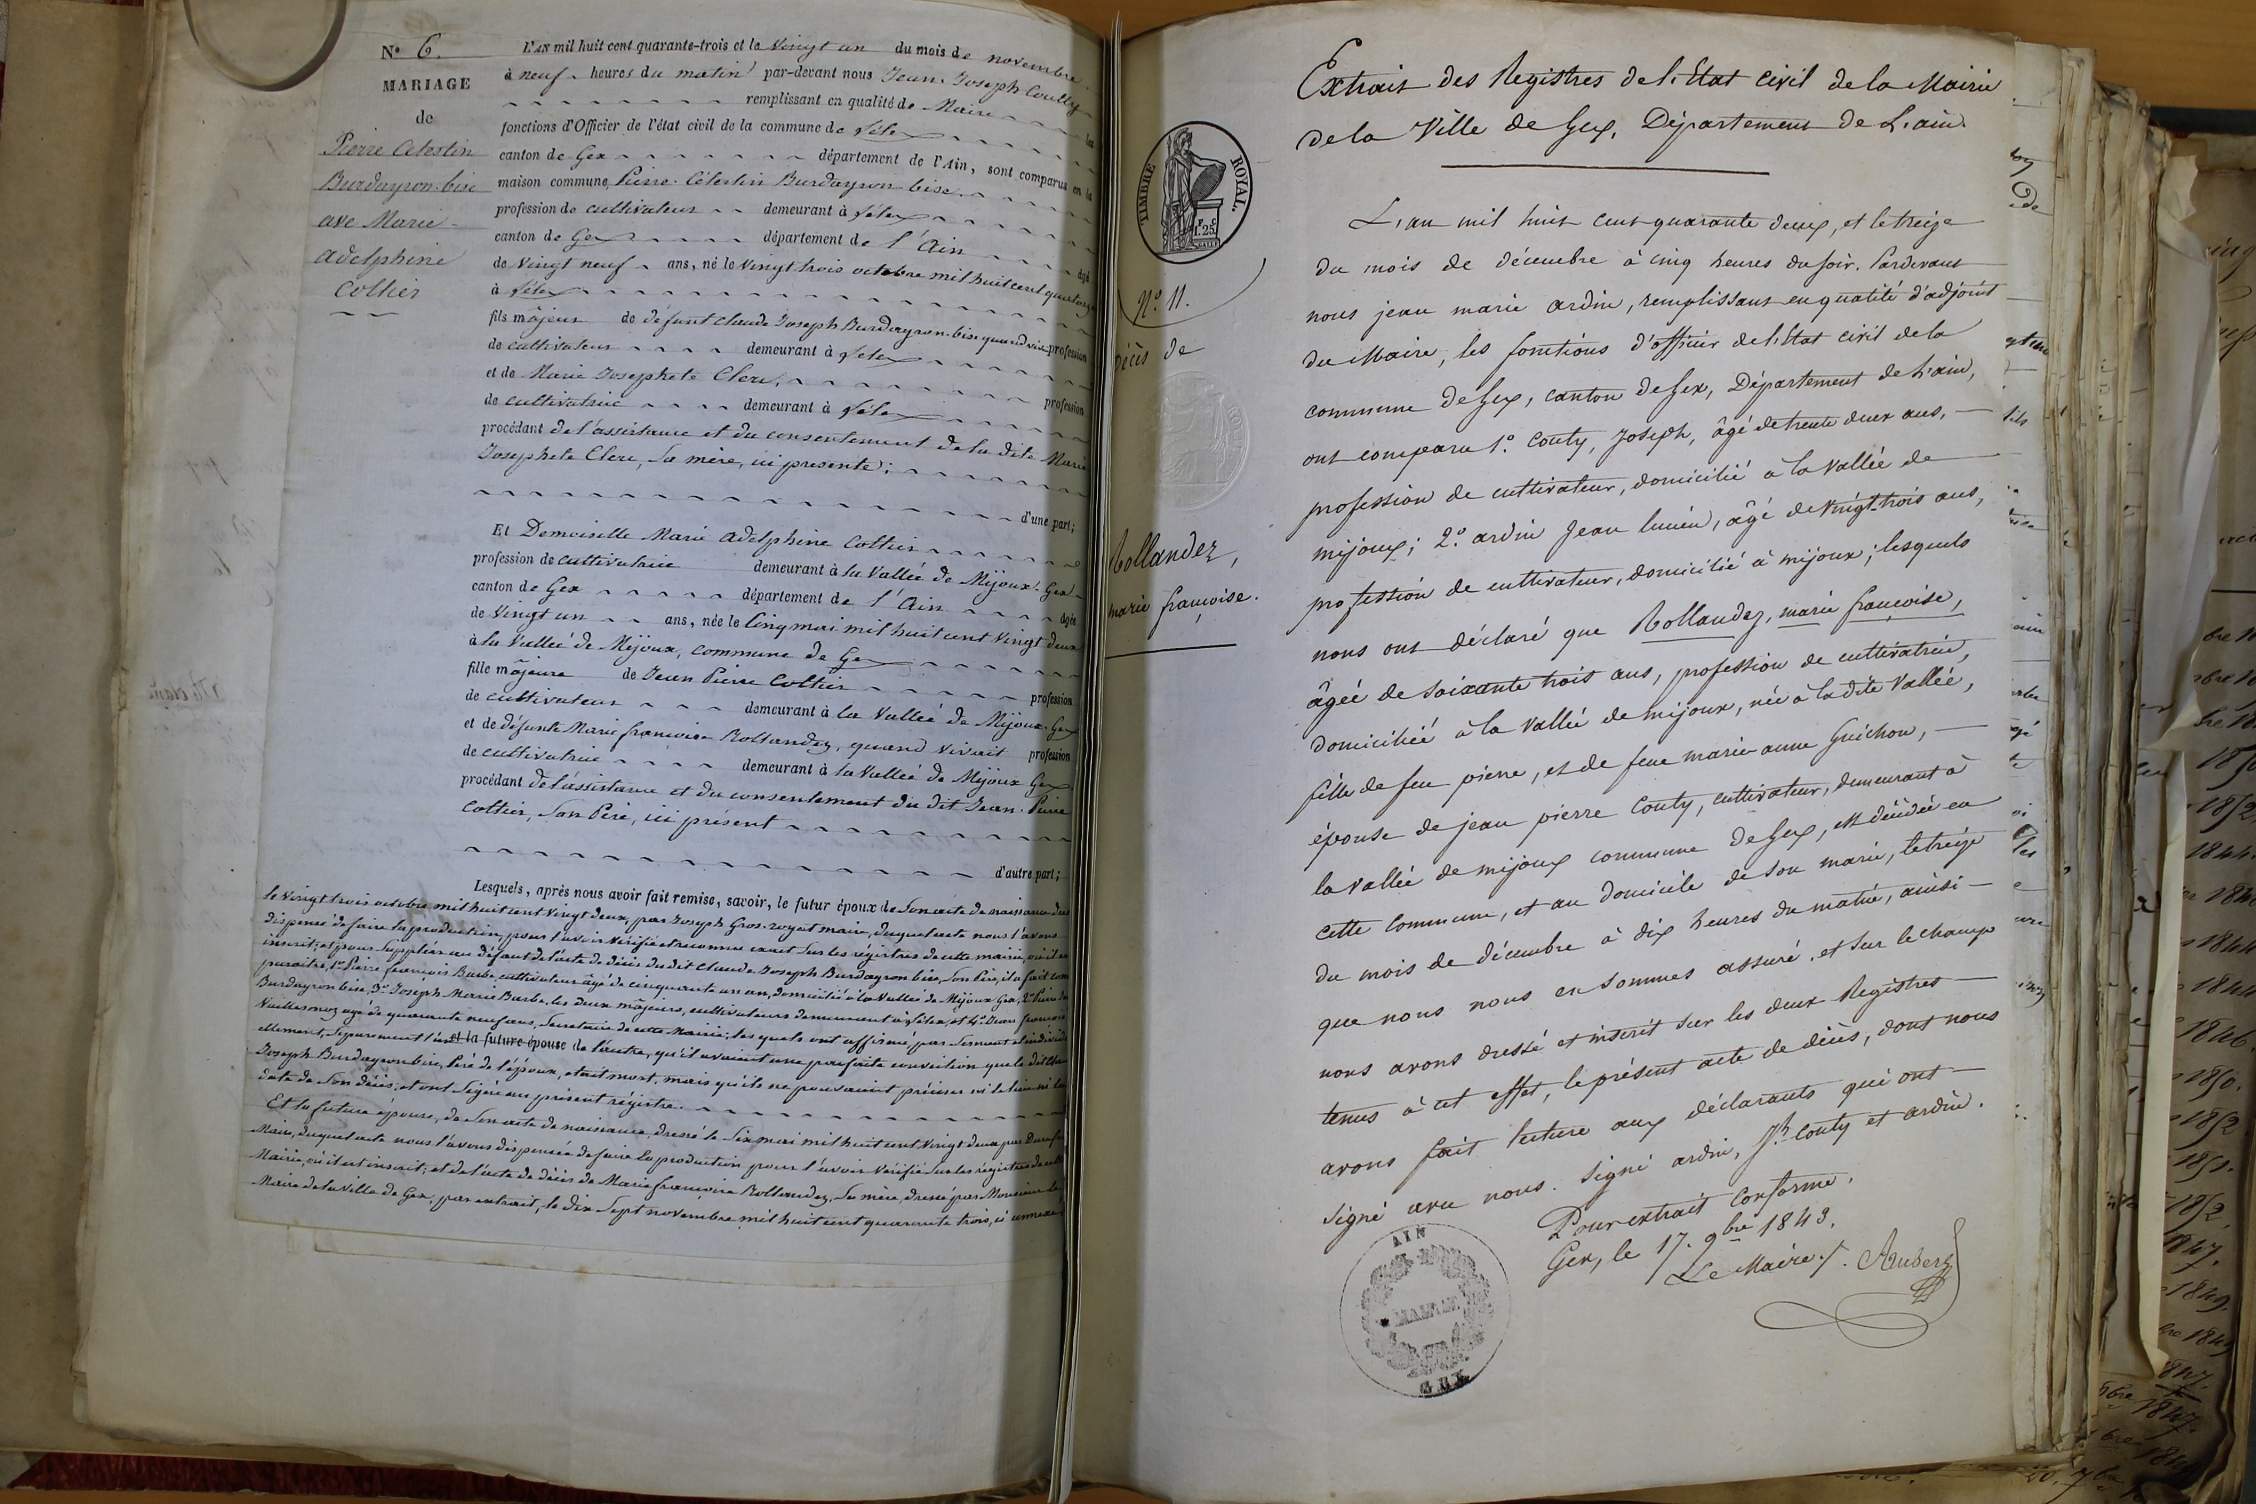 N° 6.
MARIAGE
de
Pierre Celestin
Burdayron-bise
avec Marie
adelphine
Coltier
L'AN mil huit cent quarante-trois et le vingt un du mois de novembre
à neuf heures du matin par-devant nous Jean-Joseph Coully
remplissant en qualité de Maire les
fonctions d'Officier de l'état civil de la commune de Lélex
canton de Gex département de l'Ain, sont comparus en la
maison commune, Pierre-Célestin Burdayron-bise
profession de cultivateur demeurant à Lélex
canton de Gex département de l'Ain âgé
de vingt neuf ans, né le vingt trois octobre mil huit cent quatorze
à Lélex
fils majeur de défunt Claude Joseph Burdayron-bise quand vivait profession
de cultivateur demeurant à Lélex
et de Marie Josephete Clerc, profession
de cultivatrice demeurant à Lélex
procédant de l'assistance et du consentement de la dite Marie
Josephete Clerc, sa mère, ici présente;
d'une part;
Et Demoiselle Marie adelphine Coltier
profession de cultivatrice demeurant à la Vallée de Mijoux-Gex
canton de Gex département de l'Ain âgée
de vingt un ans, née le Cinq mai mil huit cent vingt deux
à la Vallée de Mijoux, commune de Gex
fille majeure de Jean Pierre Coltier profession
de cultivateur demeurant à la Vallée de Mijoux-Gex
et de défunte Marie françoise Rollandez, quand vivait profession
de cultivatrice demeurant à la Vallée de Mijoux Gex
procédant de l'assistance et du consentement du dit Jean-Pierre
Coltier, son Père, ici présent
d'autre part;
Lesquels, après nous avoir fait remise, savoir, le futur époux de son acte de naissance
le vingt trois octobre mil huit cent vingt deux, par Joseph Gros-royat maire, duquel acte nous l'avons
dispensé de faire la production, pour l'avoir vérifié et reconnu exact sur les régistres de cette mairie, où il est
inscrit; et pour suppléer au défaut de l'acte de décès du dit Claude Joseph Burdayron bise, son Père, il a fait com
paraitre, 1° Pierre françois Barbe, cultivateur âgé de cinquante un an, domicilié à la Vallée de Mijoux Gex, 2° Pierre
Burdayron bise, 3° Joseph Marie Barbe, les deux majeurs, cultivateurs demeurant à Lélex, et 4° Jean françois
âgé de quarante neuf ans, secrétaire de cette Mairie; les quels ont affirmé, par serment et individu
ellement, séparement l'un et la future épouse de l'autre, qu'il avaient une parfaite conviction que le dit Claude
Joseph Burdayron bise, Père de l'époux, était mort, mais qu'ils ne pouvaient préciser ni le lieu ni la
date de son décès; et ont signé au présent régistre.
Et la future épouse, de son acte de naissance, dressé le six mai mil huit cent vingt deux par
Maire, duquel acte nous l'avons dispensée de faire la production pour l'avoir vérifié sur les régistres de cette
Mairie, où il est inscrit; et de l'acte de décès de Marie françoise Rollandez, sa mère, dressé par Monsieur le
Maire de la ville de Gex, par extrait, le dix sept novembre mil huit cent quarante trois, ci annexé
Extrait des Registres de l'Etat civil de la Mairie
de la Ville de Gex, Département de L'ain.
TIMBRE ROYAL.
F. C.
1.25
N° 11.
Décès de
Rollandez,
marie françoise.
L'an mil huit cent quarante deux, et le treize
du mois de décembre à cinq heures du soir. Pardevant
nous jean marie ardin, remplissant en qualité d'adjoint
du Maire, les fonctions d'officier de l'Etat civil de la
commune de Gex, canton de Gex, Département de L'ain,
ont comparu 1° Couty, Joseph, âgé de trente deux ans,
profession de cultivateur, domicilié à la vallée de
mijoux; 2° ardin Jean lucien, âgé de vingt-trois ans,
profession de cultivateur, domicilié à mijoux; lesquels
nous ont déclaré que Rollandez, marie françoise,
âgée de soixante trois ans, profession de cultivatrice,
domiciliée à la vallée de mijoux, née à la dite Vallée,
fille de feu pierre, et de feue marie-anne Guichon,
épouse de jean pierre Couty, cultivateur, demeurant à
la vallée de mijoux commune de Gex, est décédée en
cette commune, et au domicile de son marie, le treize
du mois de décembre à dix heures du matin, ainsi
que nous nous en sommes assuré, et sur le champ
nous avons dressé et inscrit sur les deux Registres
tenus à cet effet, le présent acte de décès, dont nous
avons fait lecture aux déclarants qui ont
signé avec nous. Signé ardin, Jh Couty et ardin.
Pour extrait conforme.
Gex, le 17. 9bre 1843.
Le Maire,
AIN
MAIRIE
GEX